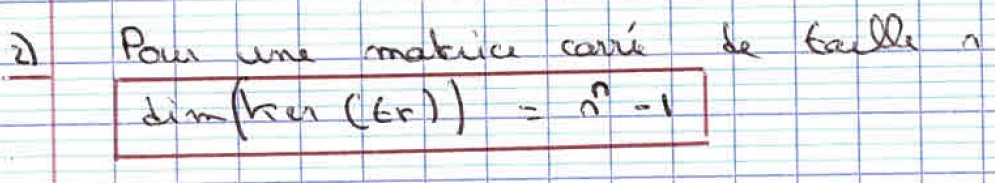 2) Pour une matrice carré de taille n
dim(ker(tr)) = n^n - 1